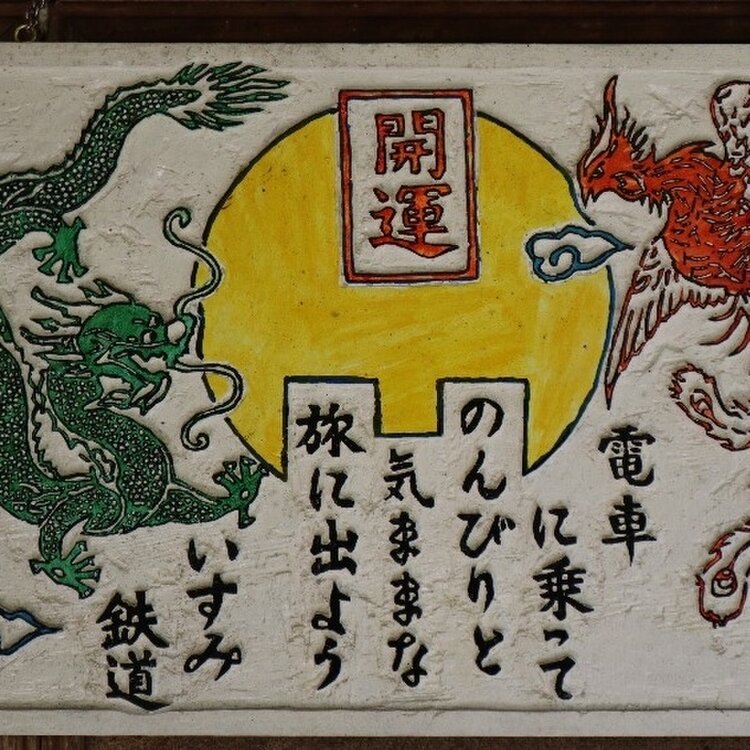 開運
電車
に乗って
のんびりと
気ままな
旅に出よう
いすみ
鉄道